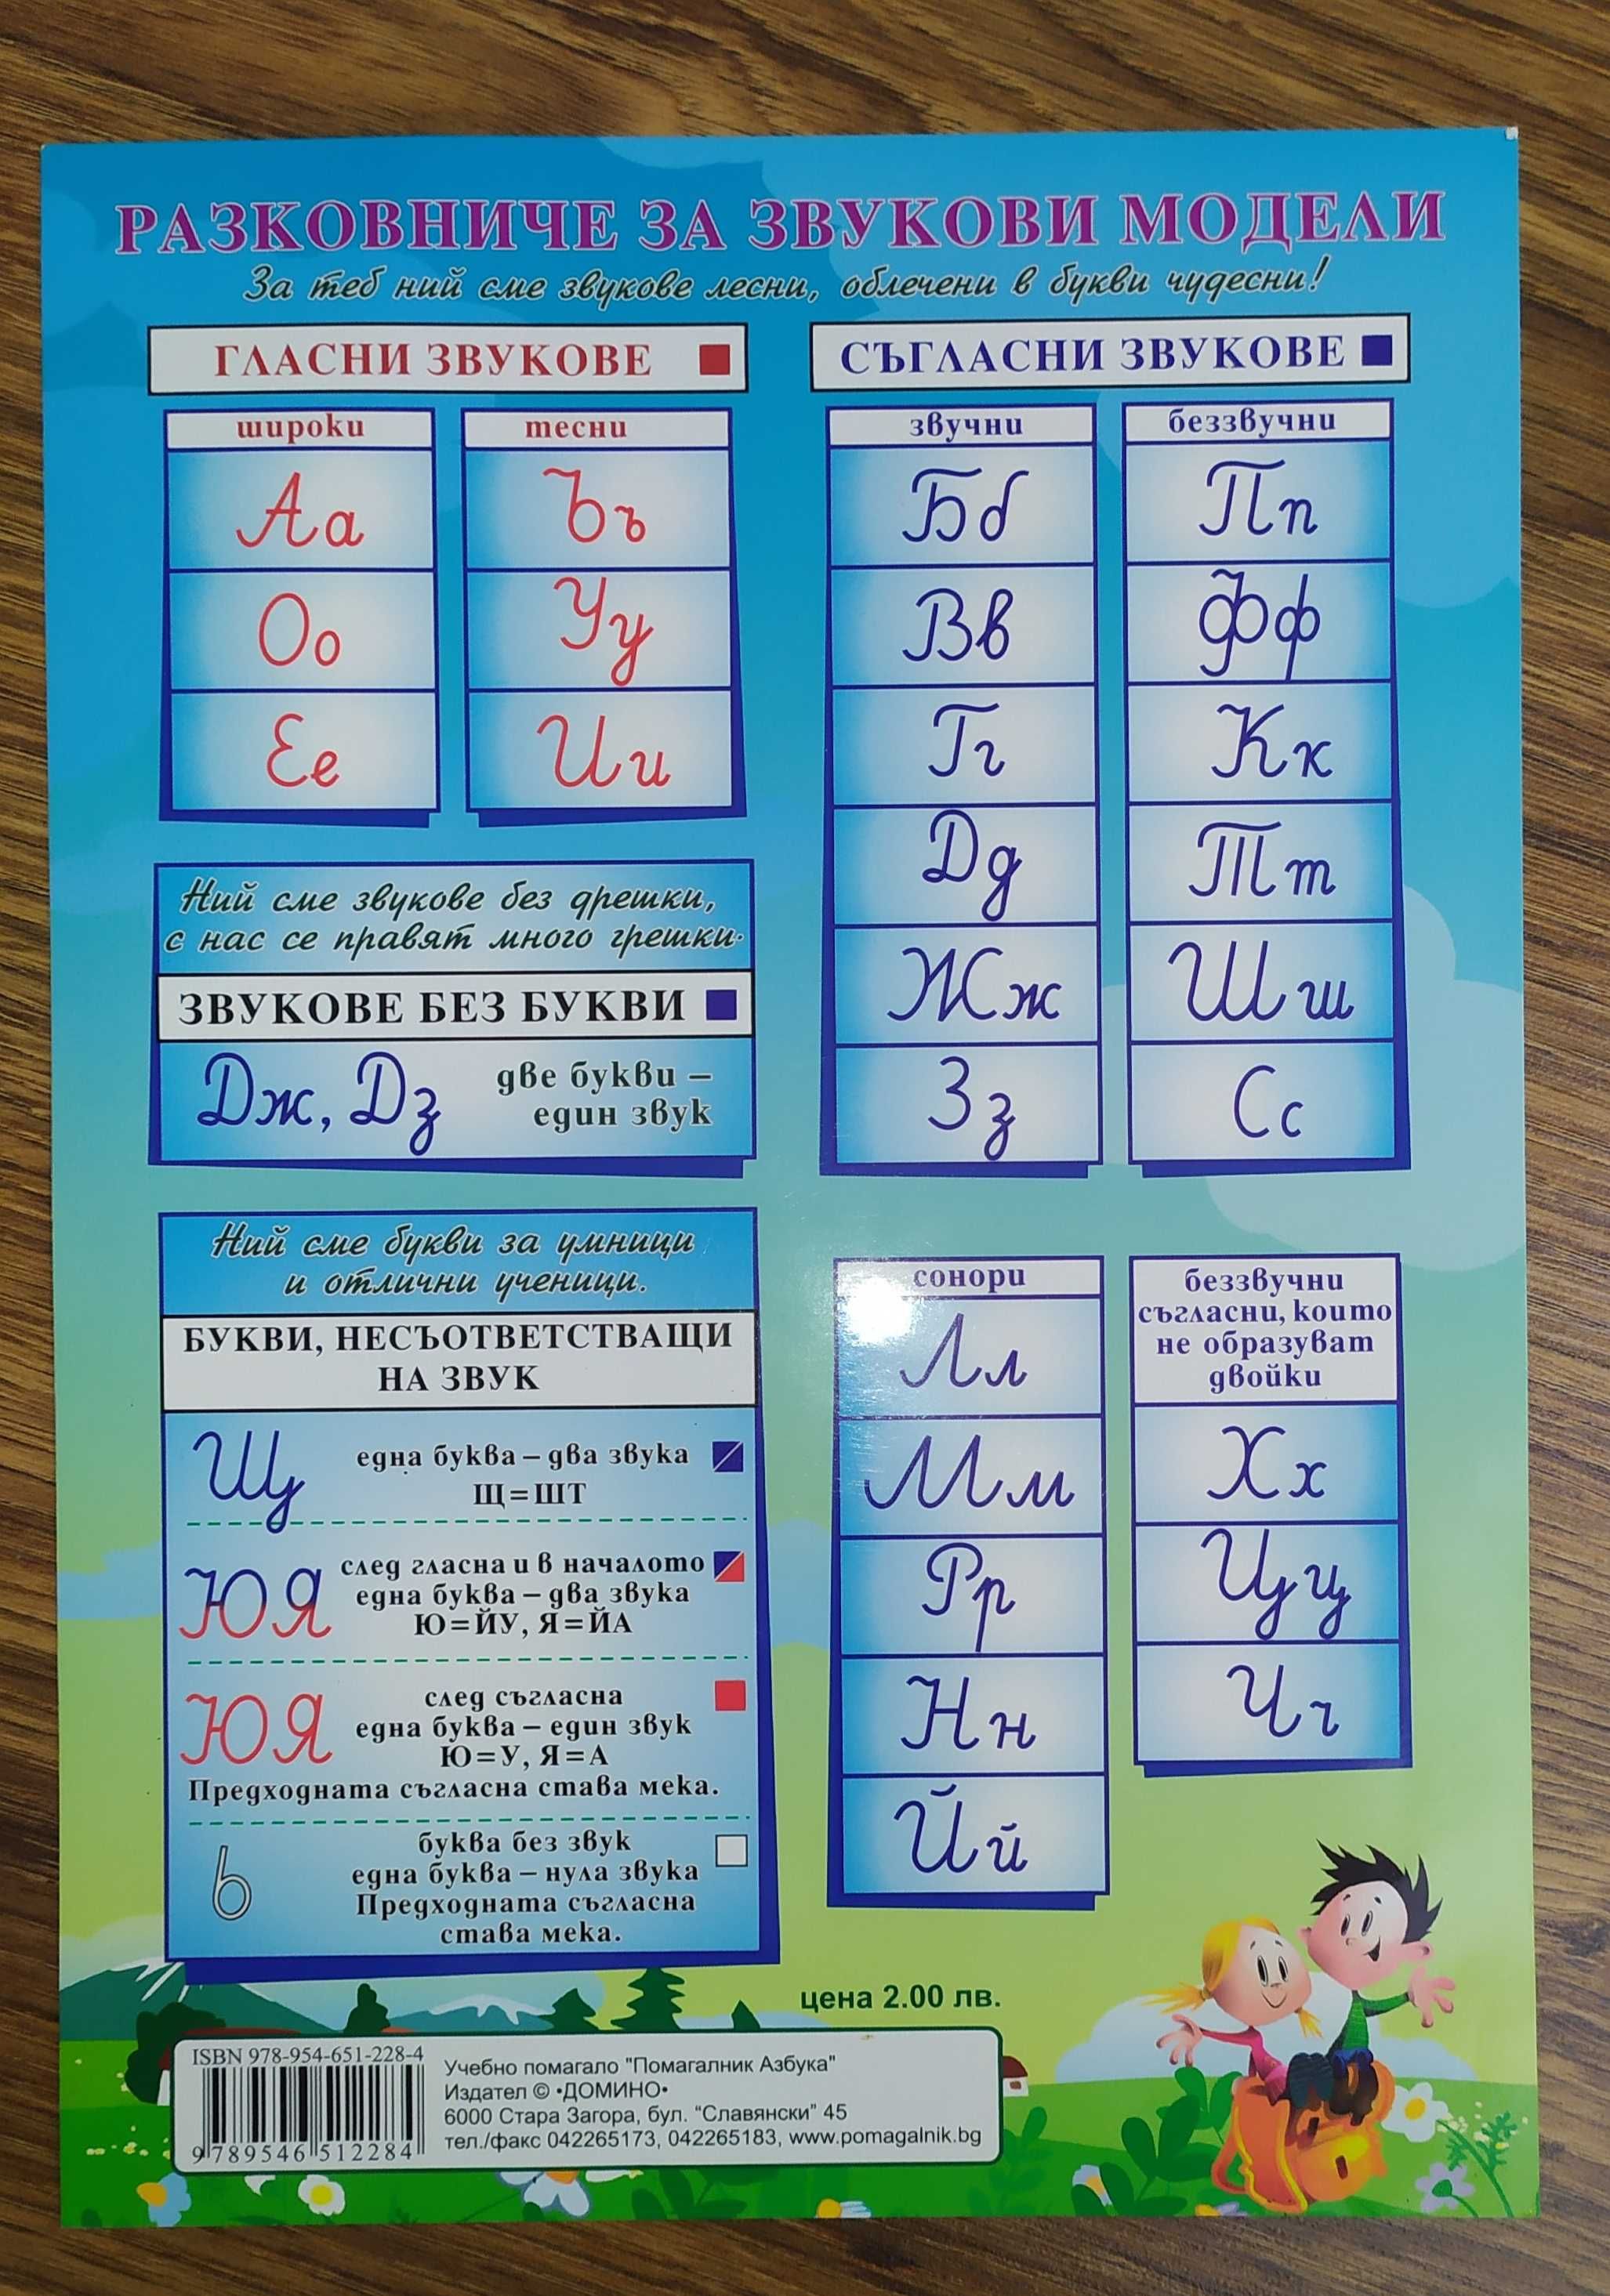 РАЗКОВНИЧЕ ЗА ЗВУКОВИ МОДЕЛИ
За теб ний сме звукове лесни, облечени в букви чудесни!
ГЛАСНИ ЗВУКОВЕ
широки
тесни
Аа
Ъъ
Оо
Уу
Ее
Ии
Ний сме звукове без дрешки,
с нас се правят много грешки.
ЗВУКОВЕ БЕЗ БУКВИ
Дж, Дз
две букви –
един звук
Ний сме букви за умници
и отлични ученици.
БУКВИ, НЕСЪОТВЕТСТВАЩИ
НА ЗВУК
Щ
една буква – два звука
Щ=ШТ
Ю Я
след гласна и в началото
една буква – два звука
Ю=ЙУ, Я=ЙА
Ю Я
след съгласна
една буква – един звук
Ю=У, Я=А
Предходната съгласна става мека.
ь
буква без звук
една буква – нула звука
Предходната съгласна
става мека.
СЪГЛАСНИ ЗВУКОВЕ
звучни
беззвучни
Бб
Пп
Вв
Фф
Гг
Кк
Дд
Тт
Жж
Шш
Зз
Сс
сонори
Лл
Мм
Рр
Нн
Йй
беззвучни
съгласни, които
не образуват
двойки
Хх
Цц
Чч
цена 2.00 лв.
ISBN 978-954-651-228-4
9 789546 512284
Учебно помагало "Помагалник Азбука"
Издател © •ДОМИНО•
6000 Стара Загора, бул. "Славянски" 45
тел./факс 042265173, 042265183, www.pomagalnik.bg